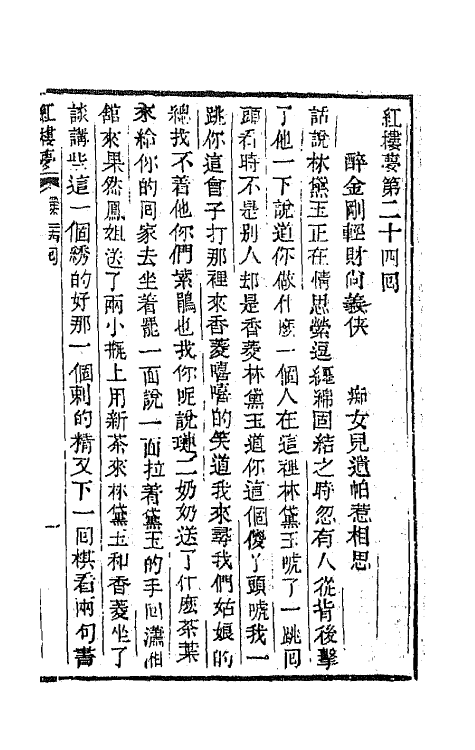 紅樓夢第二十四回
醉金剛輕財尚義俠 痴女兒遺帕惹相思
話說林黛玉正在情思縈逗纏綿固結之時忽有人從背後擊
了他一下說道你做什麽一個人在這裡林黛玉唬了一跳回
頭看時不是別人却是香菱林黛玉道你這個傻丫頭唬我一
跳你這會子打那裡來香菱嘻嘻的笑道我來尋我們姑娘的
總我不着他你們紫鵑也我你呢說璉二奶奶送了什麽茶葉
來給你的回家去坐着罷一面說一面拉着黛玉的手回瀟湘
館來果然鳳姐送了兩小瓶上用新茶來林黛玉和香菱坐了
談講些這一個綉的好那一個刺的精又下一回棋看兩句書
紅樓夢 第 回
一